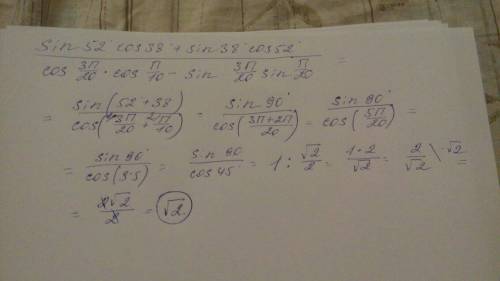 sin 52° cos 38° + sin 38° cos 52°
cos 3π/20 · cos π/10 - sin 3π/20 sin π/20 =
= sin(52° + 38) / cos(3π/20 + ²⁾π/10) = sin 90° / cos(3π+2π/20) = sin 90° / cos(5π/20) =
= sin 90° / = sin 90 / cos 45° = 1 : √2/2 = 1·2/√2 = 2/√2 \·√2 =
= 2√2/2 = √2.